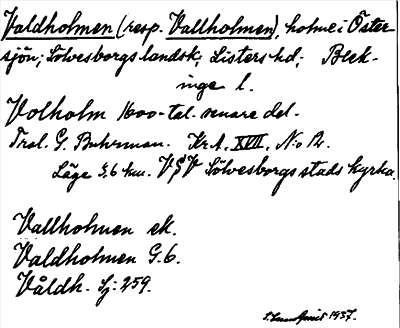 Valdholmen (resp. Vallholmen), holme i Öster-
sjön; Sölvesborgs landsk; Listers hd; Blek-
inge l.
Volholm 1600-tal. senare del.
Trol. G. Buhrman. Kr.A. XVII. N:o 12.
Läge 3,6 km. VSV Sölvesborgs stads kyrka.
Vallholmen ek.
Valdholmen G.6.
Våldh. Sj: 259.
1937.